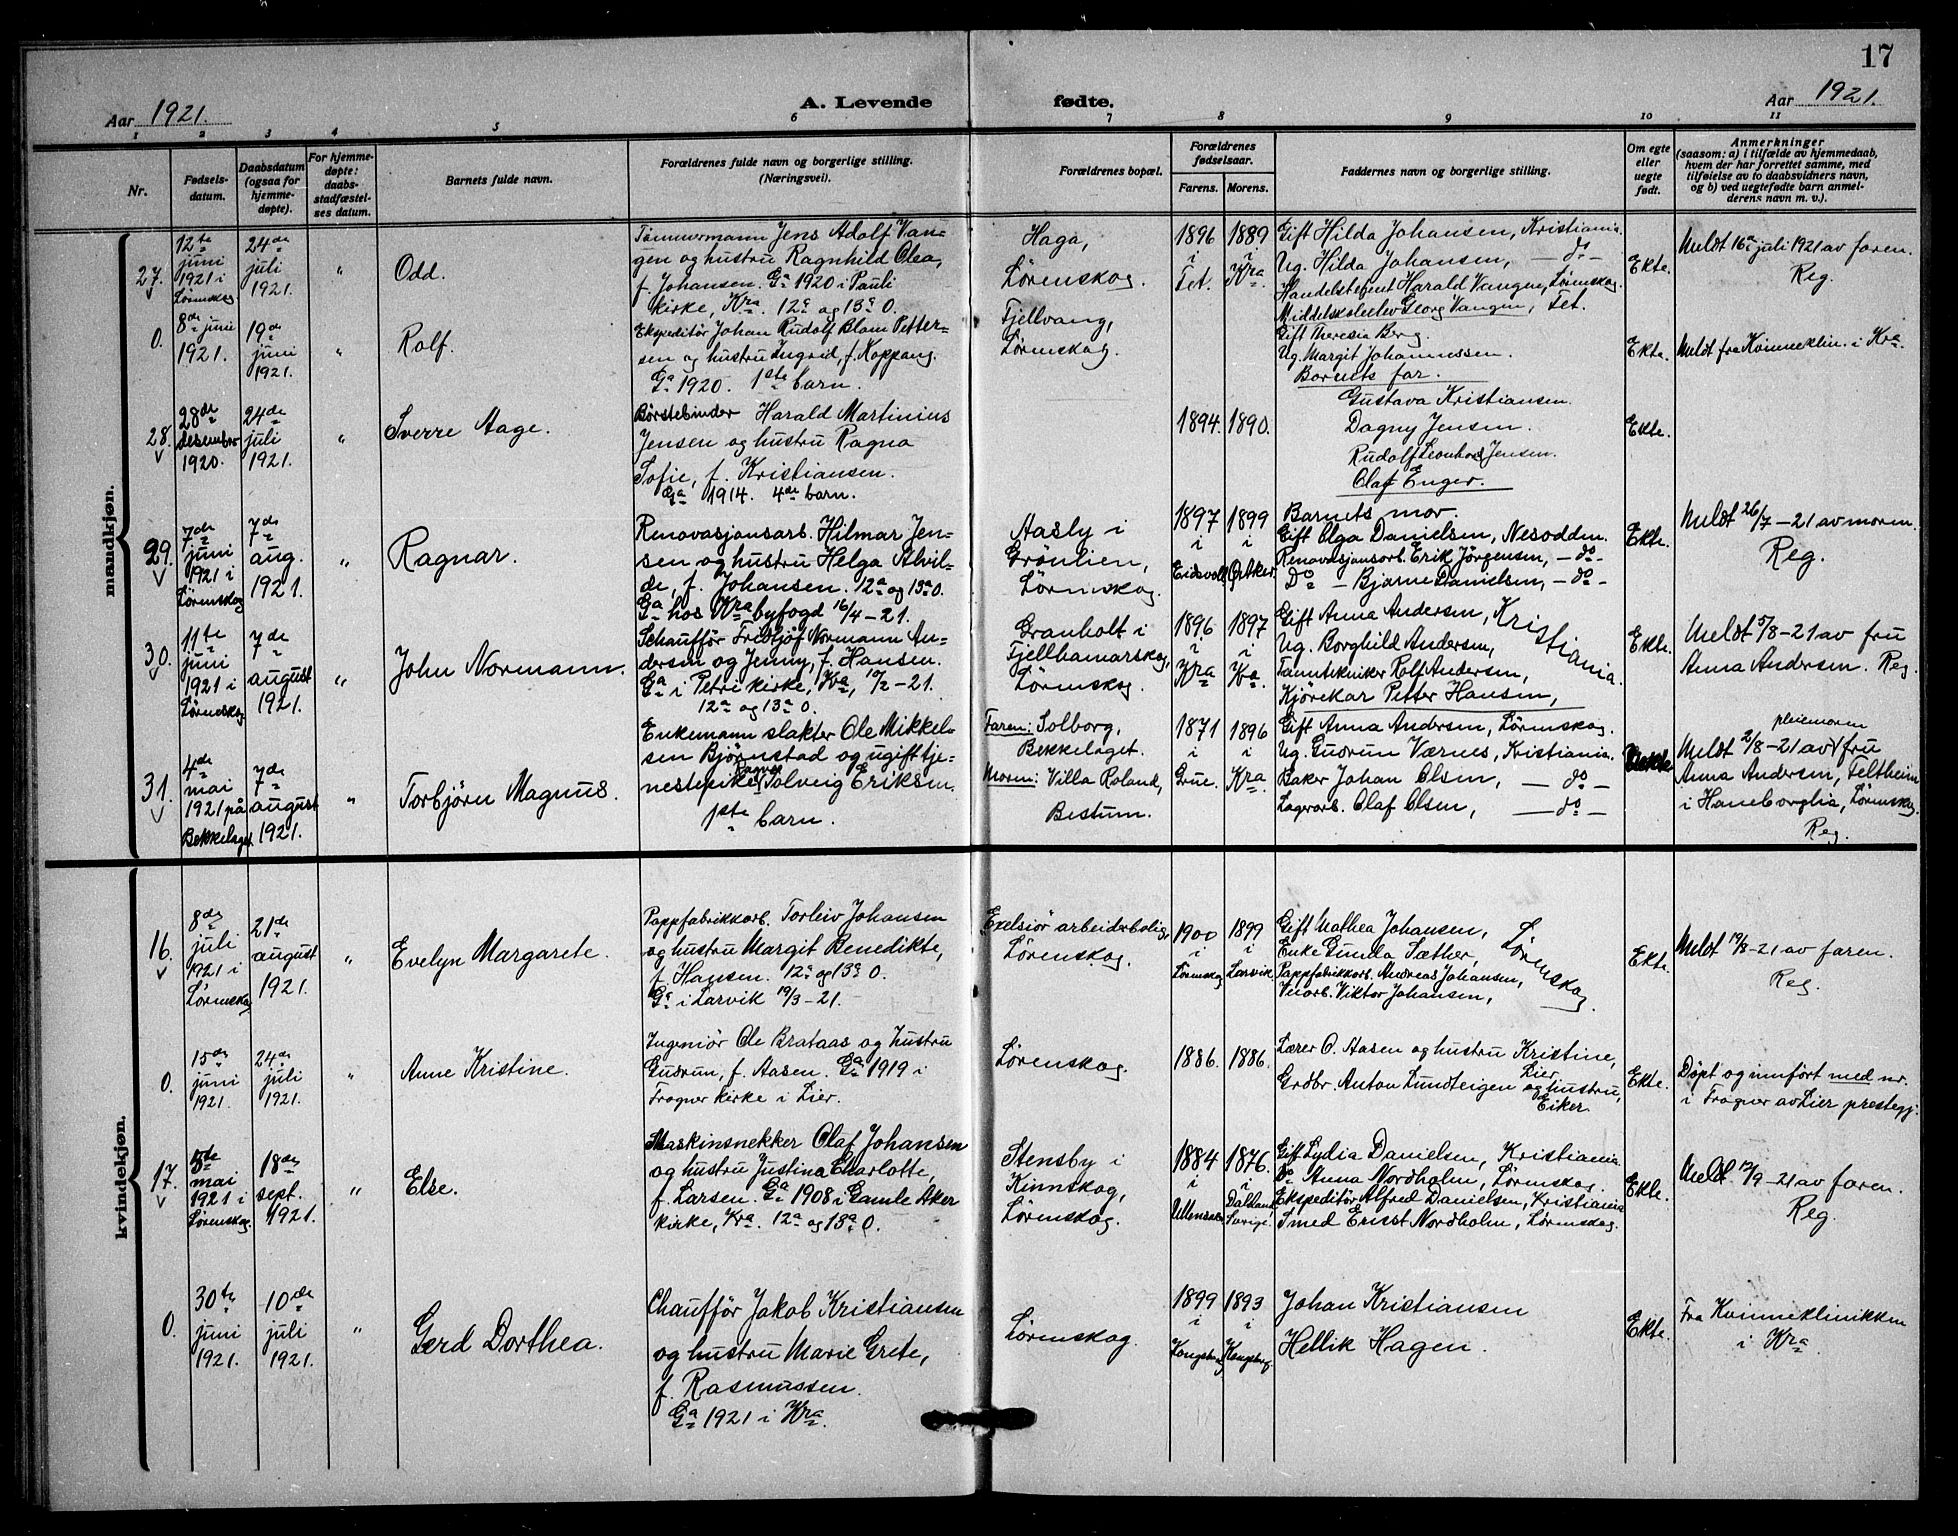 17
Aar 1921.
A. Levende fødte.
Aar 1921.
1 2 3 4 5 6 7 8 9 10 11
Nr.
Fødsels-
datum.
Daabsdatum
(ogsaa for
hjemme-
døpte).
For hjemme-
døpte:
daabs-
stadfæstel-
ses datum.
Barnets fulde navn.
Forældrenes fulde navn og borgerlige stilling.
(Næringsvei).
Forældrenes bopæl.
Forældrenes
fødselsaar.
Farens. Morens.
Faddernes navn og borgerlige stilling.
Om egte
eller
uegte
født.
Anmerkninger
(saasom: a) i tilfælde av hjemmedaab,
hvem der har forrettet samme, med
tilføielse av to daabsvidners navn,
og b) ved uegtefødte barn anmel-
derens navn m. v.).
mandkjøn.
27.
12te
juni
1921 i
Lørenskog
24de
juli
1921.
"
Odd.
Tømmermann Jens Adolf Van-
gen og hustru Ragnhild Olea,
f. Johansen. Ga 1920 i Pauli
kirke, Kra. 12a og 13a O.
Haga,
Lørenskog.
1896
i
Fet.
1889
i
Kra
Gift Hilda Johansen, Kristiania
Ug. Hilda Johansen, — do —
Handelsbetjent Harald Vangen, Lørenskog.
Middelskoleelev Georg Vangen, Fet.
Ekte.
Meldt 16a juli 1921 av faren.
Reg.
0.
8de juni
1921.
19de
juni
1921.
"
Rolf.
Ekspeditør Johan Rudolf Blom Petter-
sen og hustru Ingrid, f. Koppang.
Ga 1920. 1ste barn.
Fjellvang,
Lørenskog.
Gift Theresia Berg.
Ug. Margit Johannessen.
Barnets far.
Ekte.
Meldt fra Kvinneklin. i Kra.
28.
28de
desember
1920.
24de
juli
1921.
"
Sverre Aage.
Børstebinder Harald Martinius
Jensen og hustru Ragna
Sofie, f. Kristiansen.
Ga 1914. 4de barn.
1894.
1890.
Gustava Kristiansen.
Dagny Jensen.
Rudolf Leonhard Jensen.
Olaf Enger.
Ekte.
29.
7de
juni
1921 i
Lørenskog
7de
aug.
1921.
"
Ragnar.
Renovasjonsarb. Hilmar Jen-
sen og hustru Helga Alvil-
de, f. Johansen. 12a og 13a O.
Ga hos Kra byfogd 16/4 – 21.
Aasly i
Grønlien,
Lørenskog.
1897
i
Eidsvoll
1899
i
Ørtker.
Barnets mor.
Gift Olga Danielsen, Nesodden.
Renovasjonsarb. Erik Jørgensen, — do —
do — Bjarne Danielsen, — do —
Ekte.
Meldt 26/7 – 21 av moren.
Reg.
30.
11te
juni
1921 i
Lørenskog
7de
august
1921.
"
John Normann.
Schauffør Fridtjof Normann An-
dersen og Jenny, f. Hansen.
Ga i Petri kirke, Kra, 10/2 – 21.
12a og 13a O.
Granholt i
Fjellhamarskog,
Lørenskog.
1896
i
Kra
1897
i
Kra.
Gift Anna Andersen, Kristiania.
Ug. Borghild Andersen,
Tanntekniker Rolf Andersen,
Kjørekar Petter Hansen,
Ekte.
Meldt 5/8 – 21 av fru
Anna Andersen. Reg.
31.
4de
mai
1921 på
Bekkelaget
7de
august
1921.
"
Torbjørn Magnus.
Enkemann slakter Ole Mikkel-
sen Bjørnstad og ugift tje-
nestepike Solveig Eriksen.
1ste barn.
Faren: Solborg,
Bekkelaget.
Moren: Villa Roland,
Bestum.
1871
i
Grue.
1896
i
Kra.
Gift Anna Andersen, Lørenskog.
Ug. Gudrun Værnes, Kristiania.
Baker Johan Olsen, — do —
Lagrarb. Olaf Olsen, — do —
Uekte
pleiemoren
Meldt 2/8 – 21 av fru
Anna Andersen, Feltheim
i Haneborglia, Lørenskog.
Reg.
kvindekjøn.
16.
8de
juli
1921 i
Lørenskog
21de
august
1921.
"
Evelyn Margarete.
Pappfabrikkarb. Torleiv Johansen
og hustru Margit Benedikte,
f. Hansen. 12a og 13a O.
Ga i Larvik 19/3 – 21.
Exelsiør arbeiderbolig,
Lørenskog.
1900
i
Lørenskog
1899
i
Larvik.
Gift Mathea Johansen, Lørenskog
Enke Gunda Sæther,
Pappfabrikkarb. Andreas Johansen,
Veiarb. Viktor Johansen,
Ekte.
Meldt 19/8 – 21 av faren.
Reg.
0.
15de
juni
1921.
24de
juli
1921.
"
Anne Kristine.
Ingeniør Ole Brataas og hustru
Gudrun, f. Aasen. Ga 1919 i
Frogner kirke i Lier.
Lørenskog.
1886.
1886.
Lærer O. Aasen og hustru Kristine,
Lier,
Grdbr. Anton Lundteigen og hustru,
Eiker.
Ekte.
Døpt og innført med nr.
i Frogner av Lier prestegj.
17.
5te
mai
1921 i
Lørenskog.
18de
sept.
1921.
"
Else.
Maskinsnekker Olaf Johansen
og hustru Justina Charlotte,
f. Larsen. Ga 1908 i Gamle Aker
kirke, Kra. 12a og 13a O.
Stensby i
Kinnskog,
Lørenskog.
1884
i
Ullensaker
1876.
i
Dalsland,
Sverige.
Gift Lydia Danielsen, Kristiania
do Anna Nordholm, Lørenskog.
Ekspeditør Alfred Danielsen, Kristiania
Smed Ernst Nordholm, Lørenskog.
Ekte.
Meldt 12/9 – 21 av faren.
Reg.
0.
30te
juni
1921.
10de
juli
1921.
"
Gerd Dorthea.
Chauffør Jakob Kristiansen
og hustru Marie Grete,
f. Rasmussen.
Ga 1921 i Kra.
Lørenskog.
1899
i
Kongsberg
1893
i
Kongsberg.
Johan Kristiansen
Hellik Hagen.
Ekte.
Fra Kvinneklinikken
i Kra